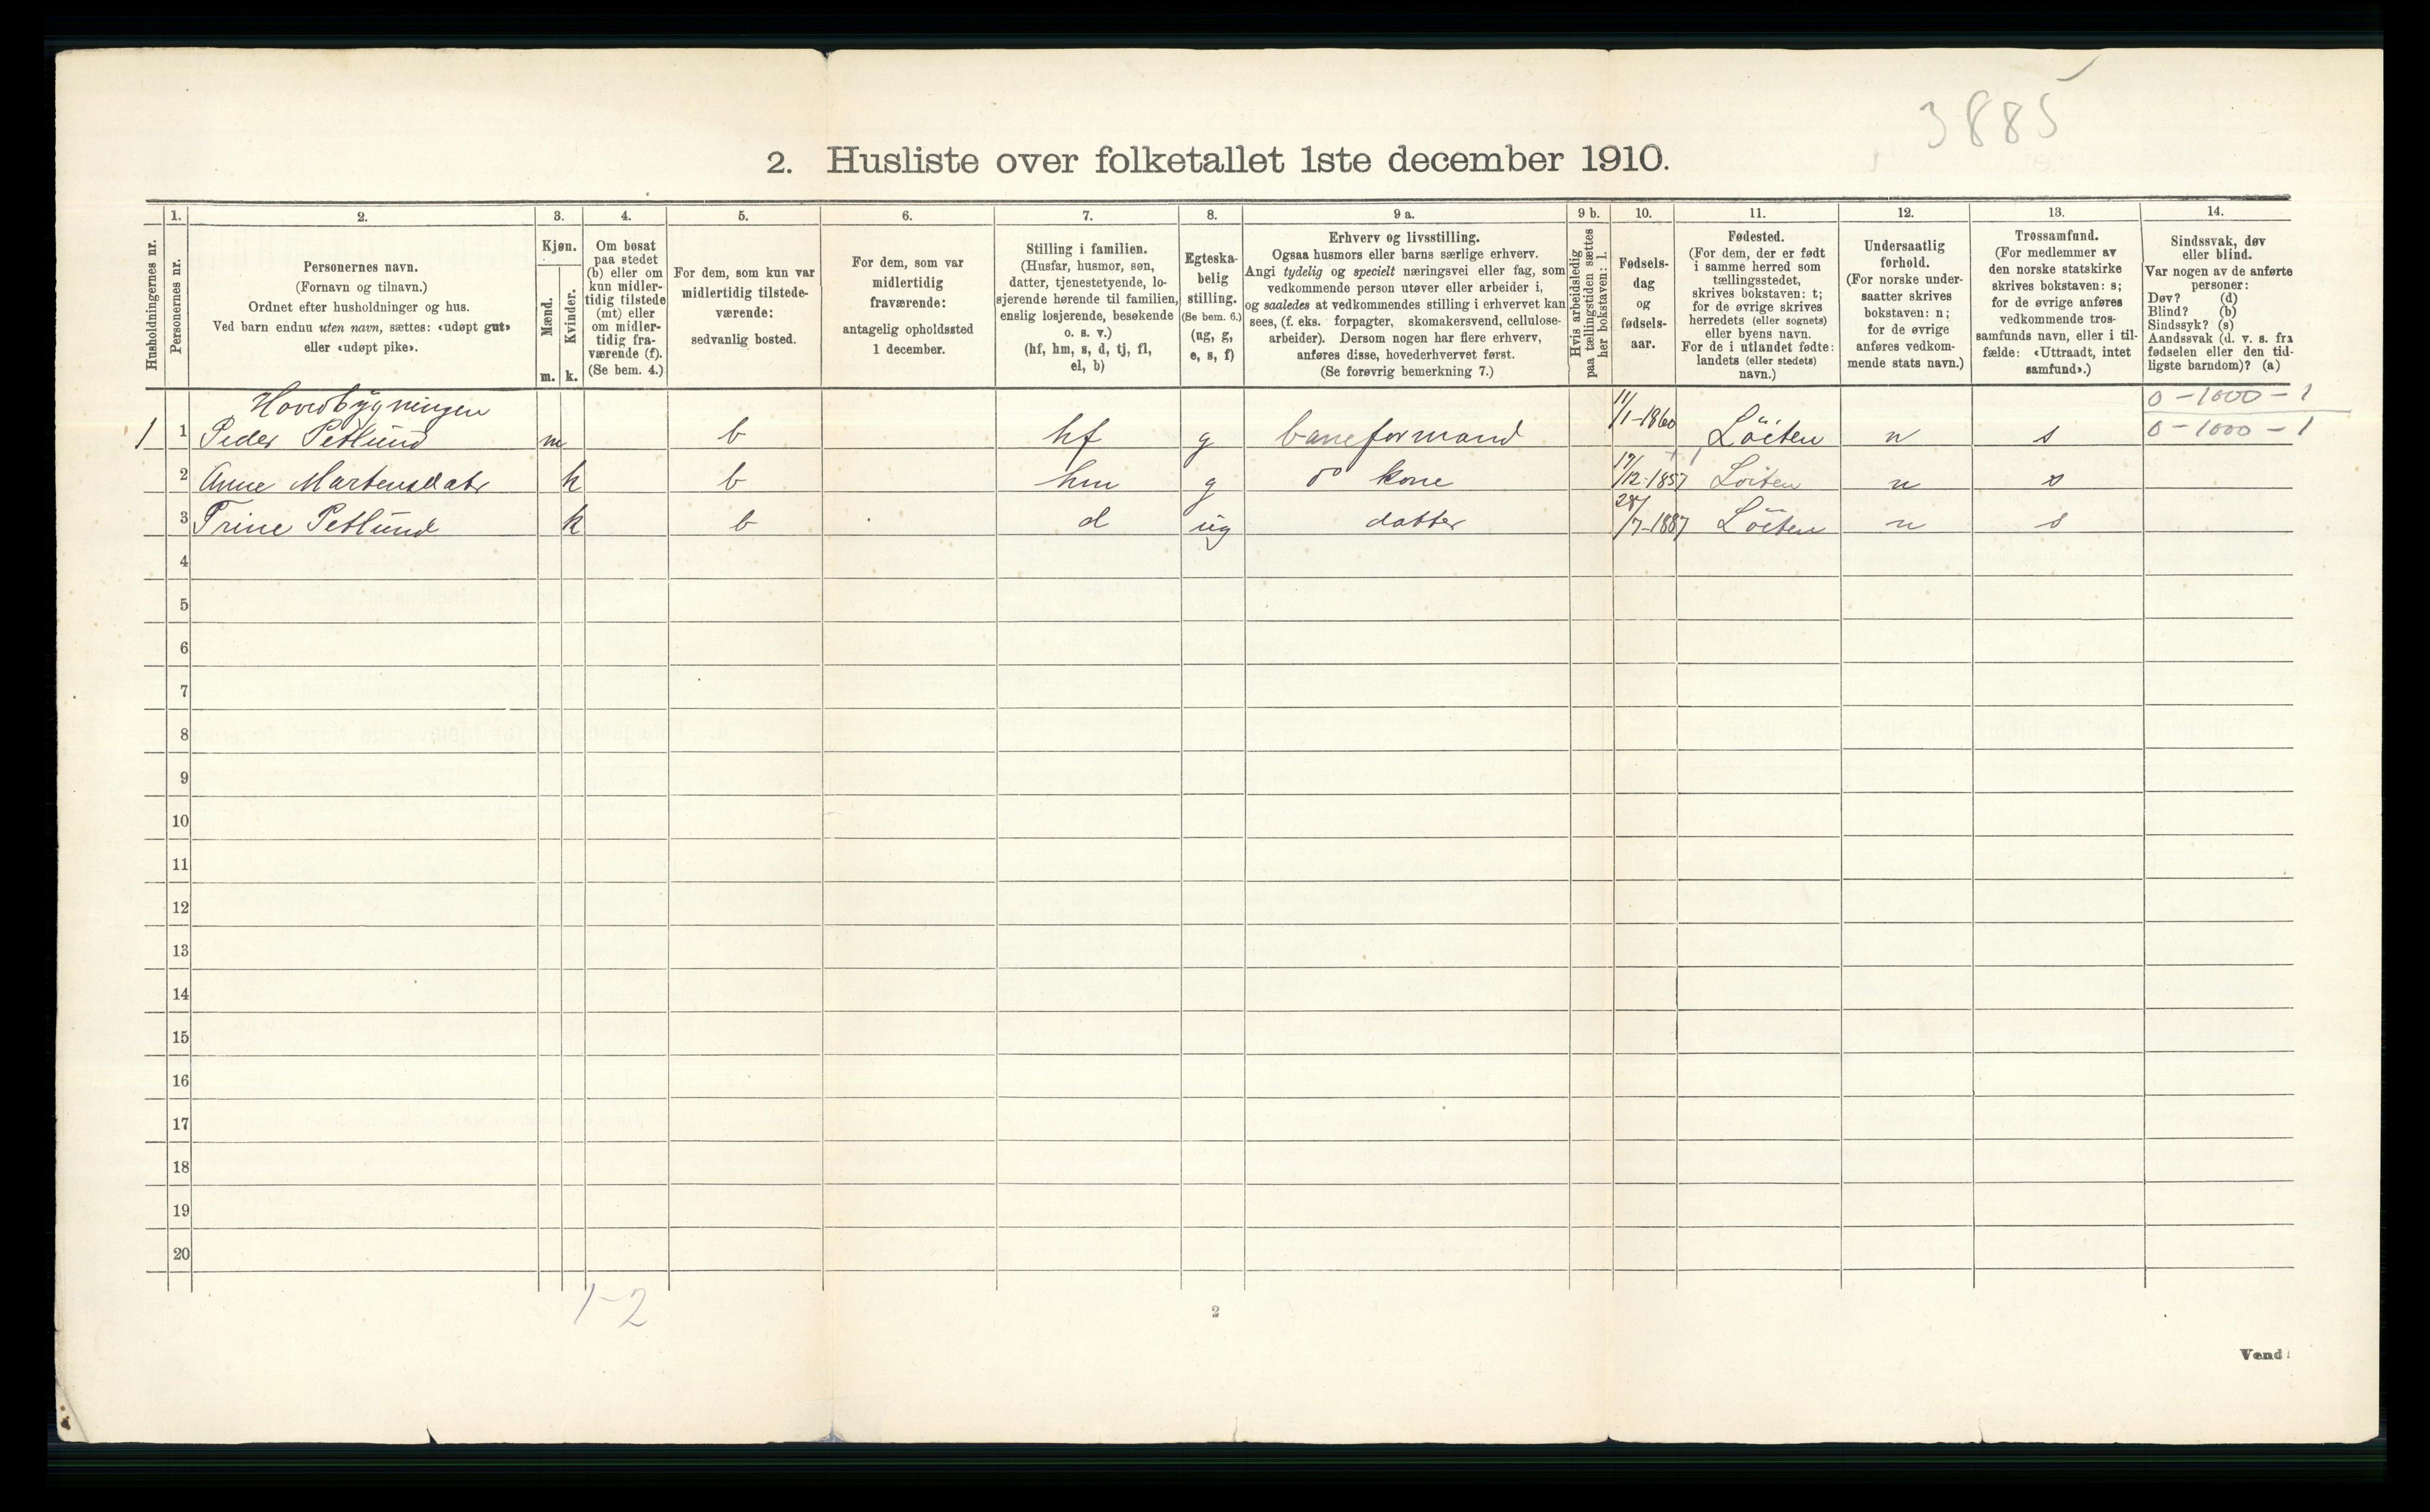 3885
2. Husliste over folketallet 1ste december 1910.
Husholdningernes nr.
1.
Personernes nr.
2.
Personernes navn.
(Fornavn og tilnavn.)
Ordnet efter husholdninger og hus.
Ved barn endnu uten navn, sættes: «udøpt gut»
eller «udøpt pike».
3.
Kjøn.
Mænd.
Kvinder.
m. k.
4.
Om bosat
paa stedet
(b) eller om
kun midler-
tidig tilstede
(mt) eller
om midler-
tidig fra-
værende (f).
(Se bem. 4.)
5.
For dem, som kun var
midlertidig tilstede-
værende:
sedvanlig bosted.
6.
For dem, som var
midlertidig
fraværende:
antagelig opholdssted
1 december.
7.
Stilling i familien.
(Husfar, husmor, søn,
datter, tjenestetyende, lo-
sjerende hørende til familien,
enslig losjerende, besøkende
o. s. v.)
(hf, hm, s, d, tj, fl,
el, b)
8.
Egteska-
belig
stilling.
(Se bem. 6.)
(ug, g,
e, s, f)
9 a.
Erhverv og livsstilling.
Ogsaa husmors eller barns særlige erhverv.
Angi tydelig og specielt næringsvei eller fag, som
vedkommende person utøver eller arbeider i,
og saaledes at vedkommendes stilling i erhvervet kan
sees, (f. eks. forpagter, skomakersvend, cellulose-
arbeider). Dersom nogen har flere erhverv,
anføres disse, hovederhvervet først.
(Se forøvrig bemerkning 7.)
9 b.
Hvis arbeidsledig
paa tællingstiden sættes
her bokstaven: l.
10.
Fødsels-
dag
og
fødsels-
aar.
11.
Fødested.
(For dem, der er født
i samme herred som
tællingsstedet,
skrives bokstaven: t;
for de øvrige skrives
herredets (eller sognets)
eller byens navn.
For de i utlandet fødte:
landets (eller stedets)
navn.)
12.
Undersaatlig
forhold.
(For norske under-
saatter skrives
bokstaven: n;
for de øvrige
anføres vedkom-
mende stats navn.)
13.
Trossamfund.
(For medlemmer av
den norske statskirke
skrives bokstaven: s;
for de øvrige anføres
vedkommende tros-
samfunds navn, eller i til-
fælde: «Uttraadt, intet
samfund».)
14.
Sindssvak, døv
eller blind.
Var nogen av de anførte
personer:
Døv? (d)
Blind? (b)
Sindssyk? (s)
Aandssvak (d. v. s. fra
fødselen eller den tid-
ligste barndom)? (a)
Hovedbygningen 0-1000-1
1 1 Peder Petlund m b hf g baneformand 11/1-1860 Löiten n s 0-1000-1
2 Anne Martensdatr k b hm g do kone 17/12-1857 Löiten n s
3 Trine Petlund k b d ug datter 28/7-1887 Löiten n s
4
5
6
7
8
9
10
11
12
13
14
15
16
17
18
19
20
1-2
2
Vend!